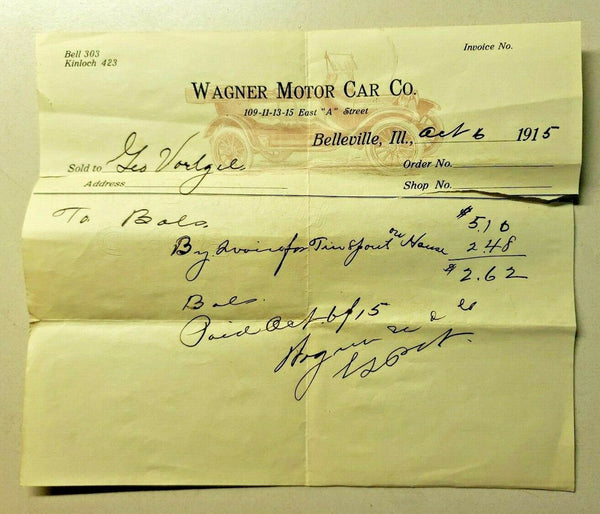 Bell 303
Kinloch 423
Invoice No.
WAGNER MOTOR CAR CO.
109-11-13-15 East "A" Street
Belleville, Ill., Oct 6 1915
Sold to Geo
Order No.
Address
Shop No.
To Bals. $5.10
By Invoice for Tin Spout on House 2.48
$2.62
Bals.
Paid Oct. 6/15
Wagner